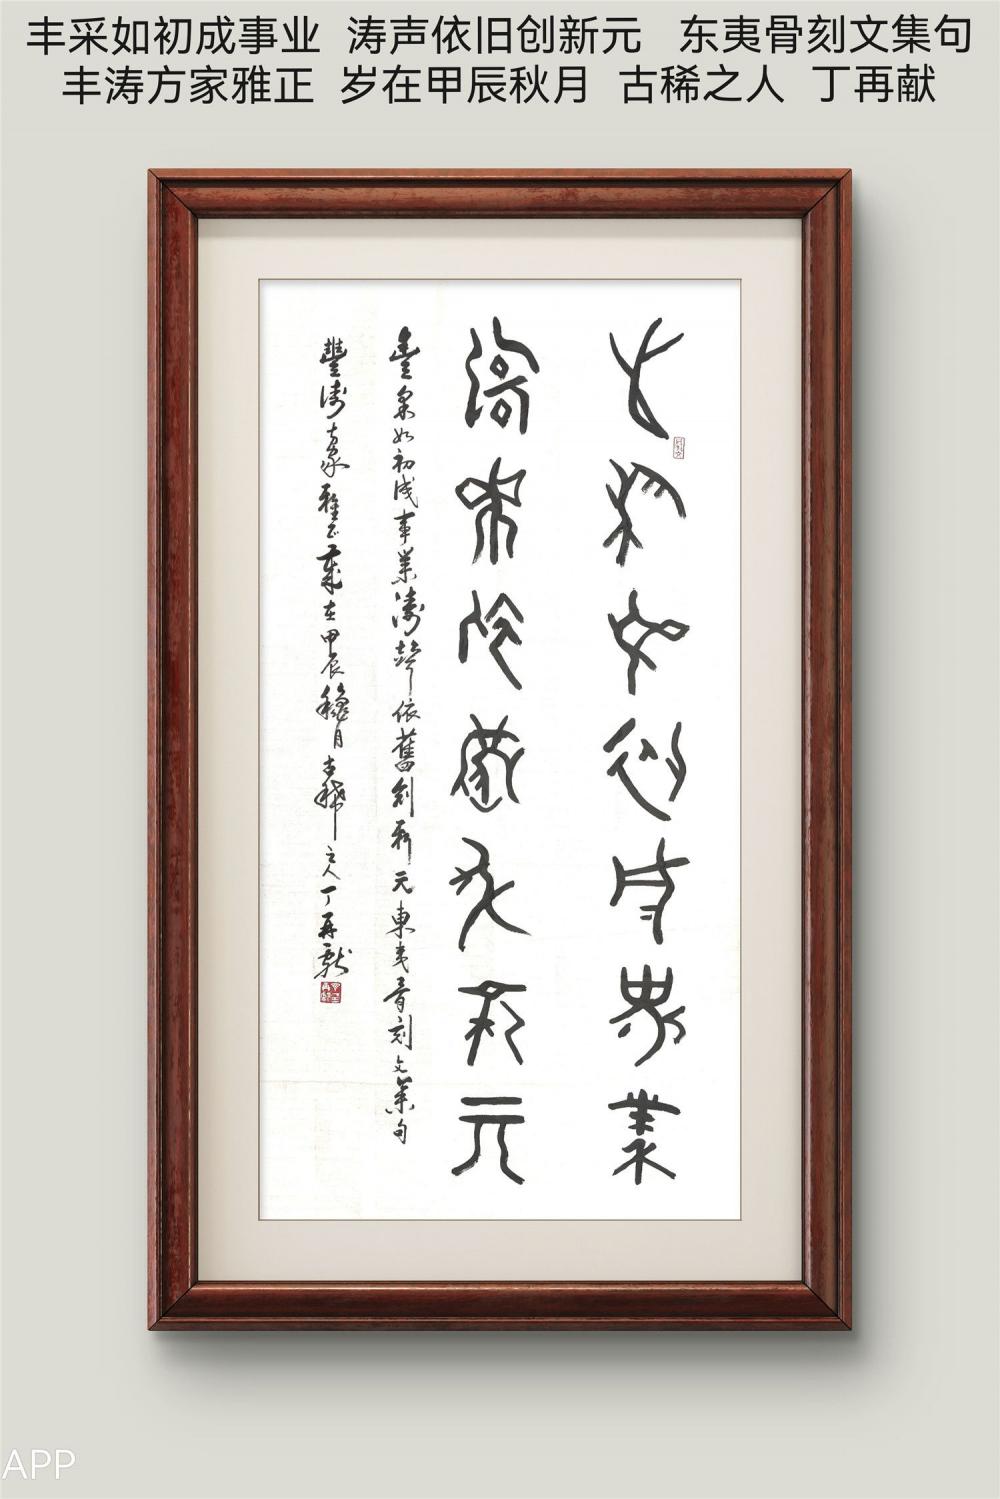 丰采如初成事业 涛声依旧创新元 东夷骨刻文集句
丰涛方家雅正 岁在甲辰秋月 古稀之人 丁再献
丰采如初成事业
涛声依旧创新元
豐采如初成事業濤聲依舊創新元東夷骨刻文集句
豐濤方家雅正歲在甲辰穐月古稀之人丁再獻
APP